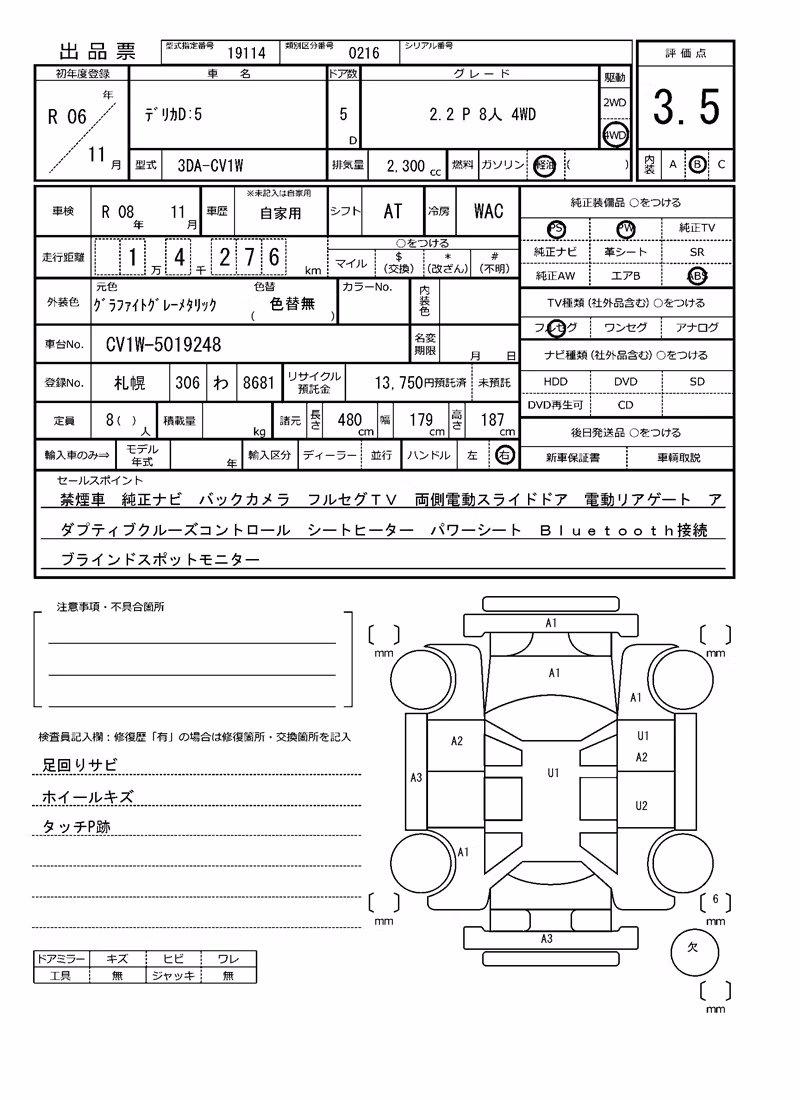 出品票 型式指定番号 19114 類別区分番号 0216 シリアル番号
評価点
3.5
内装 A B C
初年度登録 車名 ドア数 グレード 駆動
R 06 年 11 月
ﾃﾞﾘｶD:5
5 D
2.2 P 8人 4WD
2WD
4WD
型式 3DA-CV1W 排気量 2,300 cc 燃料 ガソリン 軽油 ( )
車検 R 08 年 11 月 車歴 ※未記入は自家用 自家用 シフト AT 冷房 WAC
走行距離 1 万 4 千 2 7 6 km
○をつける
マイル $ (交換) * (改ざん) # (不明)
外装色 元色 ｸﾞﾗﾌｧｲﾄｸﾞﾚｰﾒﾀﾘｯｸ 色替 ( 色替無 ) カラーNo. 内装色
車台No. CV1W-5019248 名変期限 月 日
登録No. 札幌 306 わ 8681 リサイクル預託金 13,750円預託済 未預託
定員 8( ) 人 積載量 kg 諸元 長さ 480 cm 幅 179 cm 高さ 187 cm
輸入車のみ⇒ モデル年式 年 輸入区分 ディーラー 並行 ハンドル 左 右
純正装備品 ○をつける
PS PW 純正TV
純正ナビ 革シート SR
純正AW エアB ABS
TV種類(社外品含む)○をつける
フルセグ ワンセグ アナログ
ナビ種類(社外品含む)○をつける
HDD DVD SD
DVD再生可 CD
後日発送品 ○をつける
新車保証書 車輌取説
セールスポイント
禁煙車 純正ナビ バックカメラ フルセグTV 両側電動スライドドア 電動リアゲート ア
ダプティブクルーズコントロール シートヒーター パワーシート Bluetooth接続
ブラインドスポットモニター
注意事項・不具合箇所
検査員記入欄：修復歴「有」の場合は修復箇所・交換箇所を記入
足回りサビ
ホイールキズ
タッチP跡
ドアミラー キズ ヒビ ワレ
工具 無 ジャッキ 無
A1
[ ] mm
[ ] mm
A1
A1
A2
U1
A2
A3
U1
U2
A1
[ ] mm
[ 6 ] mm
A3
欠
[ ] mm